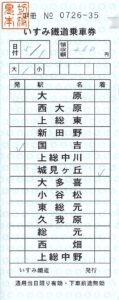 冊 № 0726-35
いすみ鐵道乗車券
日付
領収額
大
小
発 駅名 着
大原
西大原
上総東
新田野
国吉
上総中川
城見ヶ丘
大多喜
小谷松
東総元
久我原
総元
西畑
上総中野
いすみ鉄道 発行
通用当日限り有効・下車前途無効